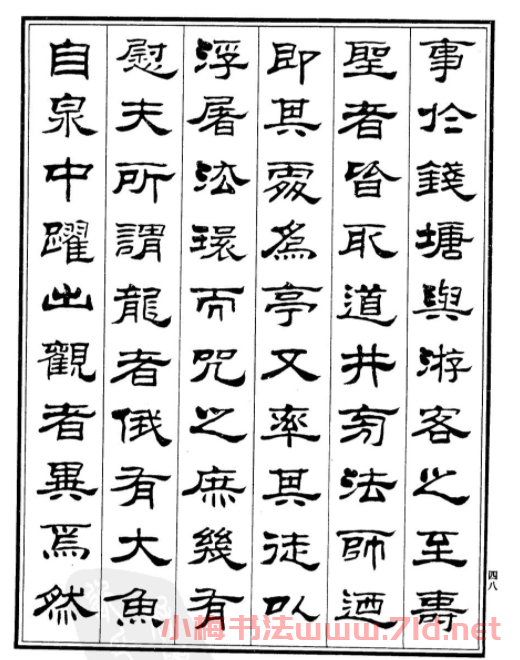 事於錢塘與游客之至壽
聖者皆取道井旁法師迺
即其處爲亭又率其徒以
浮屠法環而咒之庶幾有
慰夫所謂龍者俄有大魚
自泉中躍出觀者異焉然
四八
小梅书法www.7ld.net